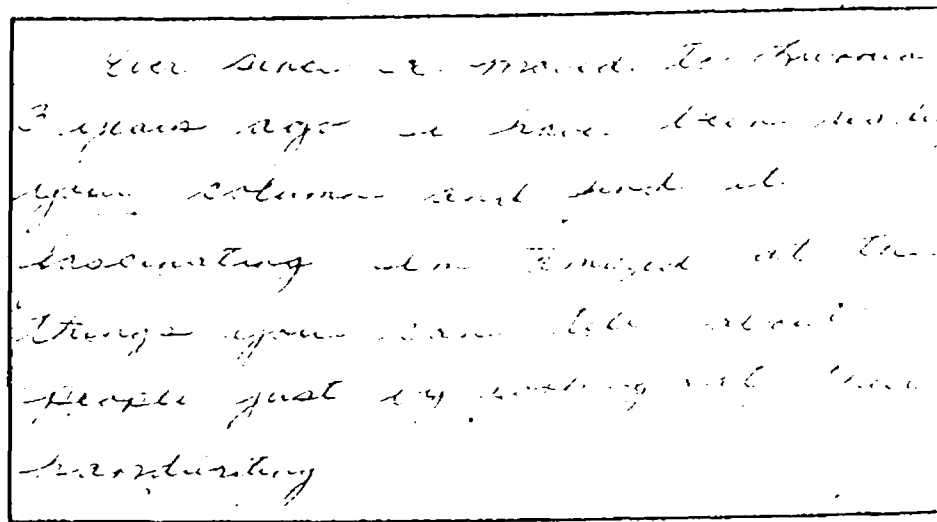 Ever since I moved to
3 years ago I have been
your column and find it
fascinating I'm amazed at the
things you can tell about
people just by looking at their
handwriting